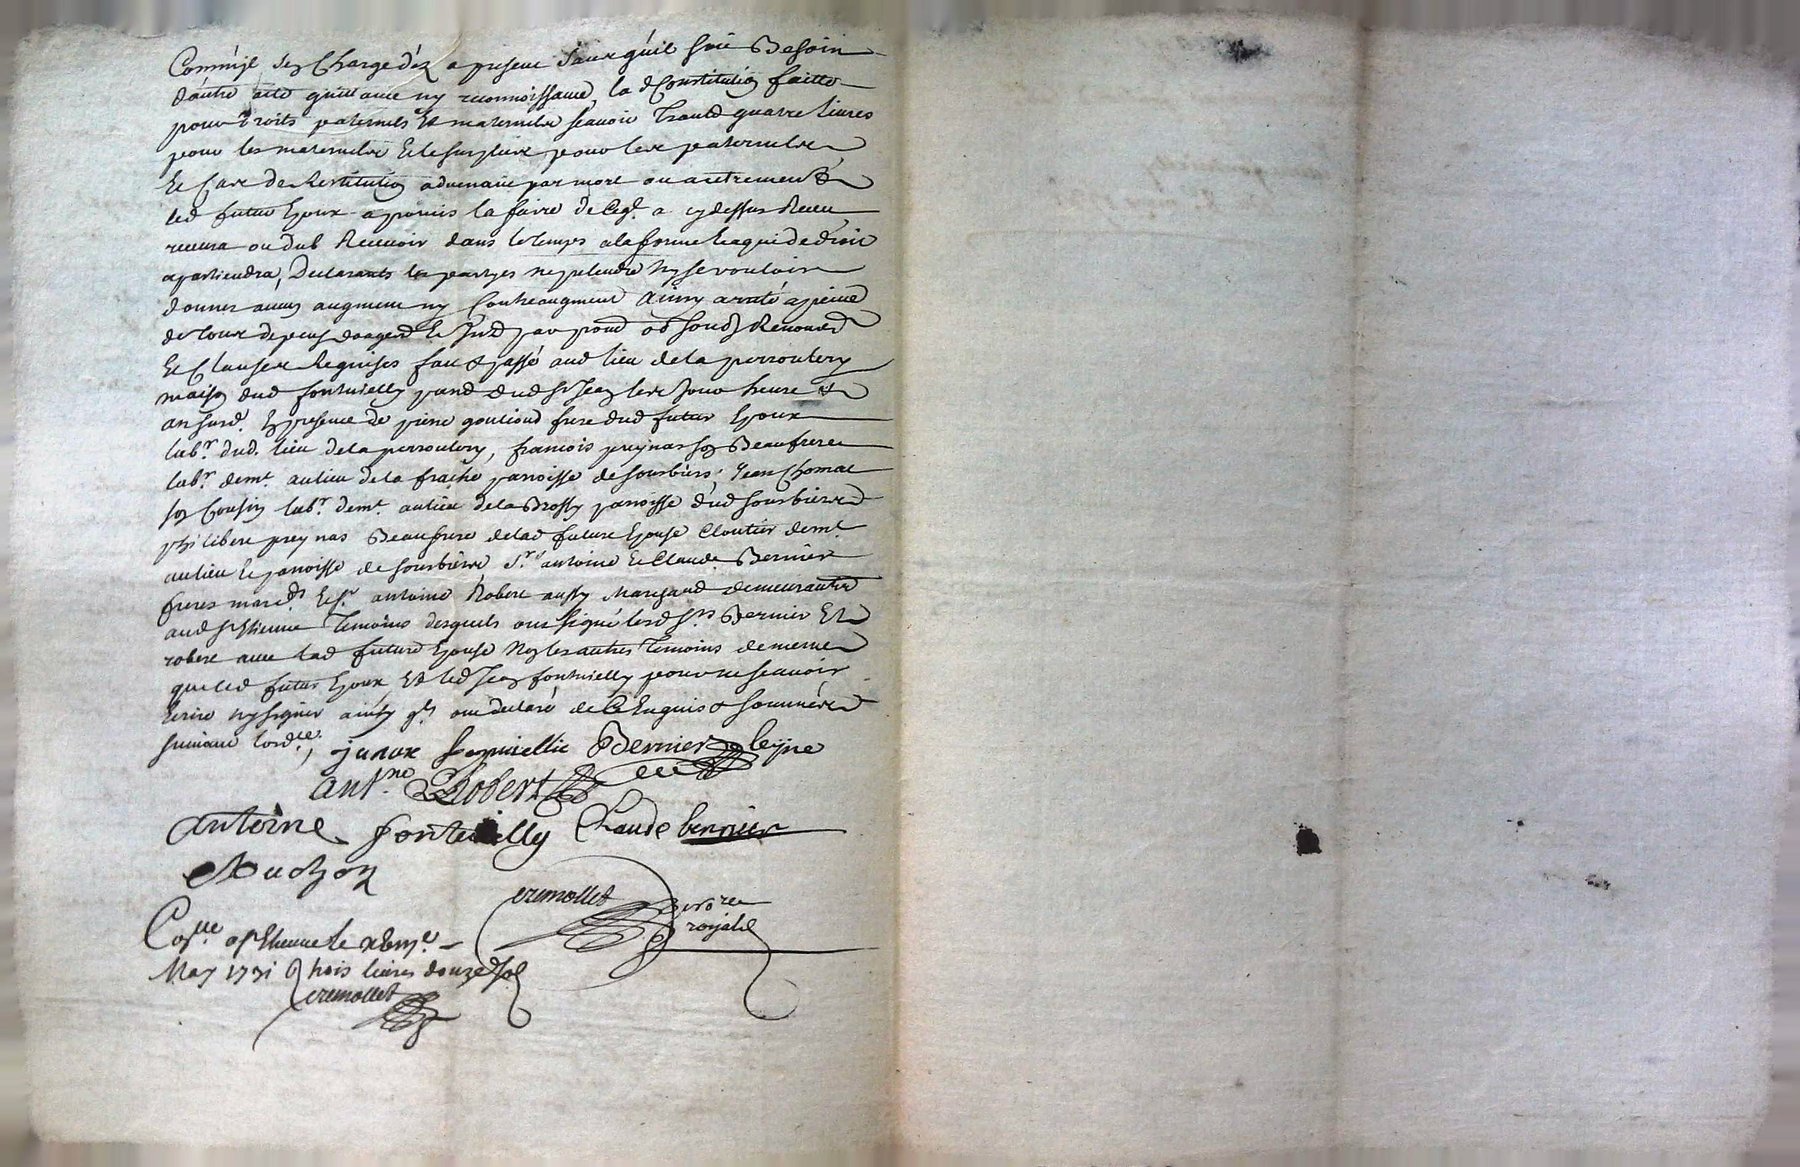 Comme il s'en charge dez a present sans quil soit Besoin
dautre acte quittance ny reconnoissance, la d Constitution faitte
pour Droits paternels Et maternels scavoir Trante quatre livres
pour les maternels Et le surplus pour les paternels
Et Cas de Restitution advenant par mort ou autrement
led futur Epoux a promis la faire de Ce ql a cy dessus Receu
recevra ou dub Recevoir dans le temps a la forme Et a qui de droit
apartiendra, Declarants les partyes ne pretendre Ny se vouloir
donner aucun augment ny Contreaugment Ainsy arreté a peine
de tous depens
Et Clauses Requises fait & passé aud lieu de la perroutery
maison dud fontvielly dud St Jean les Jour heure &
an susd. En presence de pierre goutioud frere dud futur Epoux
labr. dud. lieu de la perroutery, francois preynas son Beaufrere
labr. demt. au lieu de la fraithe parroisse de sourbiers, Jean Chomat
son Cousin labr. demt. au lieu de la Brosse parroisse dud sourbiers
philibert preynas Beaufrere de lad future Epouse Cloutier demt.
au lieu Et parroisse de sourbiers Srs antoine Et Claude Bernier
freres marcds. Et Sr antoine Robert aussy Marchand demeurants
aud St Etienne Temoins desquels ont signé lesd Srs Bernier Et
robert avec lad future Epouse Non les autres Temoins de meme
que led futur Epoux Et led Jean fontvielly pour ne scavoir
Ecrire ny signer ainsy qls ont declaré de Ce Enquis & sommés
suivant lordce,
Bernier leyne
antne. Robert
antoine fontvielly Claude bernier
cremollet
royal
a St Etienne le
May 1731 trois livres douze sol
cremollet